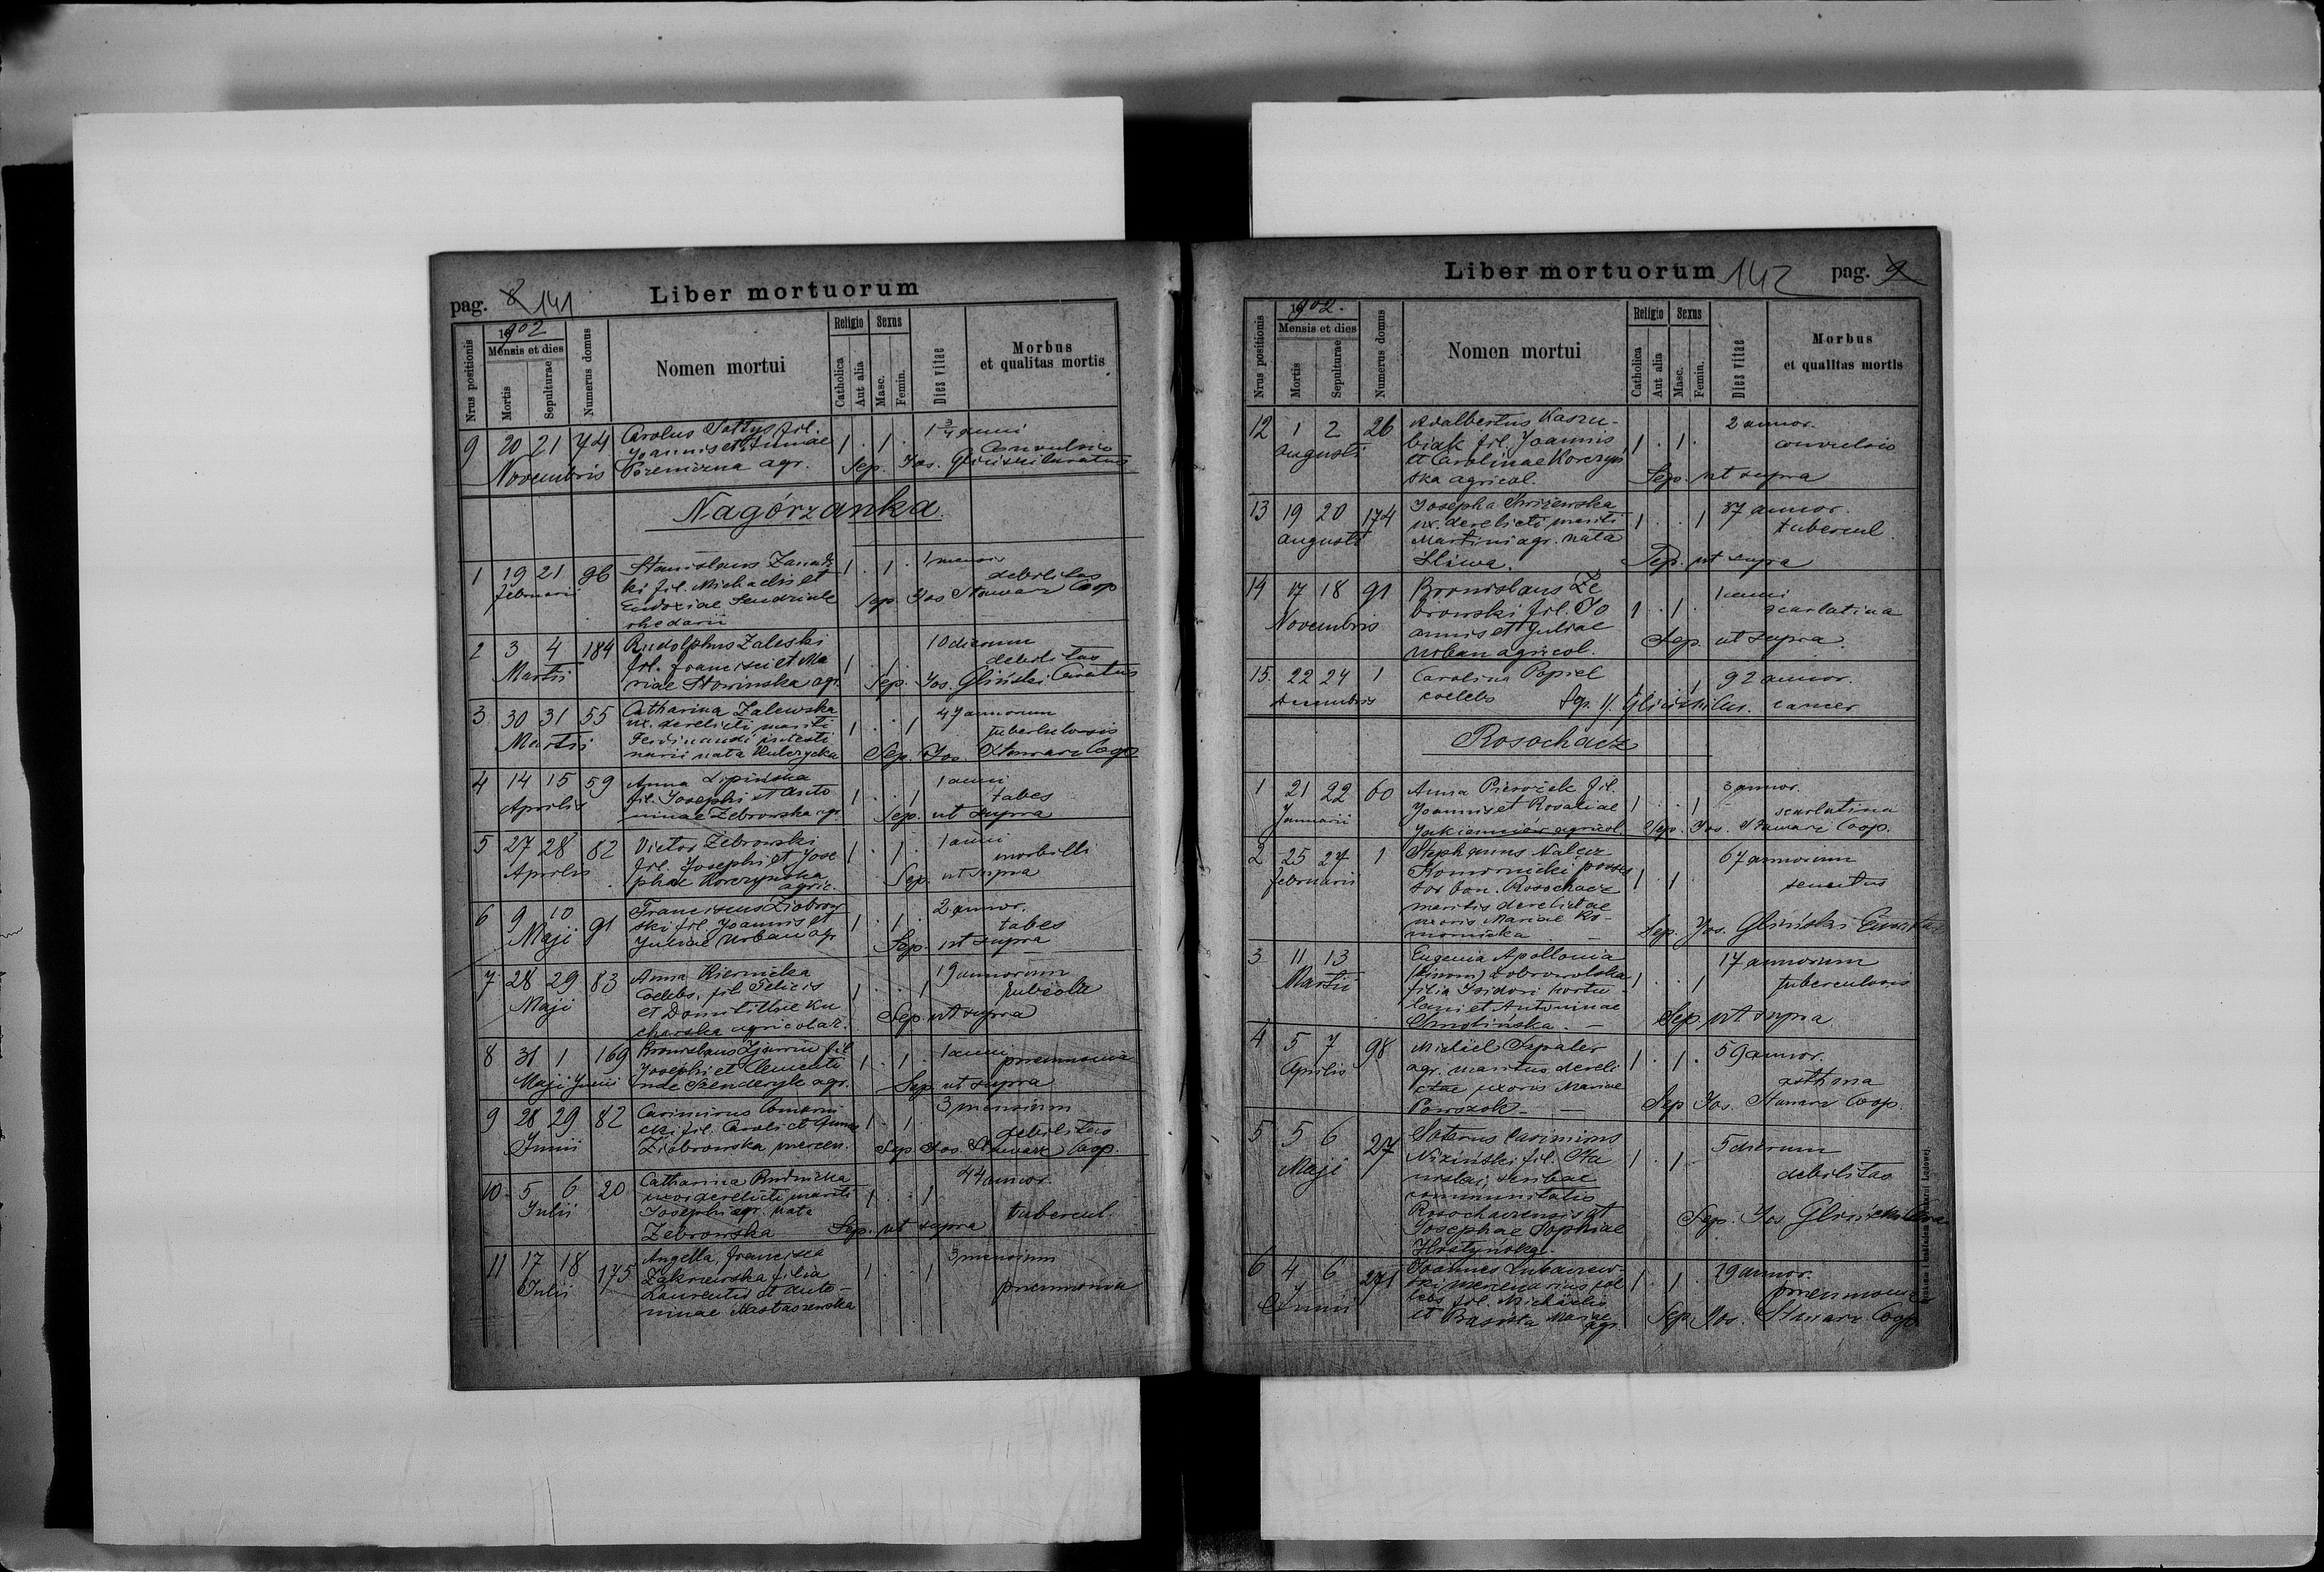 pag. 8 141
Liber mortuorum
1902
Mensis et dies
Nrus positionis
Mortis
Sepulturae
Numerus domus
Nomen mortui
Religio
Catholica
Aut alia
Sexus
Masc.
Femin.
Dies vitae
Morbus
et qualitas mortis
9 20 21 74 Carolus Sołtys fil. 1 . 1 . 1 3/4 anni
Joannis et Annae convulsio
Novembris agr. Sep. Jos. Gliński Curatus
Nagórzanka
1 19 21 96 Stanislaus 1 . 1 .
Februarii ki fil. Michaelis et debilitas
Eudoxiae Sep. Jos. Stawarz Coop
rhedarii
2 3 4 184 Rudolphus Zaleski 10 dierum
Martii fil. Francisci et Ma 1 . 1 . debilitas
riae Słowinska agr. Sep. Jos. Gliński Curatus
3 30 31 55 Catharina Zalewska 47 annorum
ux. derelicti mariti 1 . . 1
Martii Ferdinandi
nata Kulczycka Sep. Jos. Stawarz Coop
4 14 15 59 Anna Lipińska 1 anni
Aprilis fil. Josephi et Anto 1 . . 1 tabes
ninae Żebrowska agr. Sep. ut supra
5 27 28 82 Victor Żebrowski 1 . 1 . 1 anni
Aprilis fil. Josephi et Jose morbilli
phae Korczynska Sep. ut supra
agric.
6 9 10 91 Franciscus Ziobrow 2 annor.
Maji ski fil. Joannis et 1 . 1 . tabes
Juliae Urban agr Sep. ut supra
7 28 29 83 Anna Kiernicka 19 annorum
Maji Coelebs, fil. Felicis 1 . . 1 rubeola
et Domitillae Ku Sep. ut supra
charska agricolar.
8 31 1 169 Bronislaus fil 1 . 1 . 1 anni
Maji Junii Josephi et Clementi pneumonia
nae agr. Sep. ut supra
9 28 29 82 Casimirus 1 . 1 . 3 mensium
Junii cki fil. Caroli et Annae debilitas
Ziobrowska, mercen. Sep. Jos. Stawarz Coop.
10 5 6 20 Catharina Rudnicka 44 annor.
Julii uxor derelicti mariti 1 . . 1
Josephi agr. nata tubercul.
Żebrowska Sep. ut supra
11 17 18 175 Angella Francisca 3 mensium
Julii Zakrzewska filia 1 . . 1
Laurentii et Anto- pneumonia
ninae
Liber mortuorum 142 pag. 9
1902.
Mensis et dies
Nrus positionis
Mortis
Sepulturae
Numerus domus
Nomen mortui
Religio
Catholica
Aut alia
Sexus
Masc.
Femin.
Dies vitae
Morbus
et qualitas mortis
12 1 2 26 Adalbertus Kaszu- 2 annor.
Augusti biak fil. Joannis 1 . 1 . convulsio
et Carolinae Korczyń
ska agricol. Sep. ut supra
13 19 20 174 Josepha 37 annor.
Augusti ux. derelicti mariti 1 . . 1 tubercul.
Martini agr. nata
Śliwa. Sep. ut supra
14 17 18 91 Bronislaus Że 1 anni
Novembris browski fil. Jo 1 . 1 . scarlatina
annis et Juliae
Urban agricol. Sep. ut supra.
15. 22 24 1 Carolina Popiel 1 . . 1 92 annor.
Decembris coelebs Sep. J. Gliński Cur. cancer
Rosochacz
1 21 22 60 Anna Pierożek fil. 3 annor.
Januarii Joannis et Rosaliae 1 . . 1 scarlatina
agricol. Sep. Jos. Stawarz Coop.
2 25 27 1 Stephanus Nałęcz 67 annorum
Februarii Komornicki posses 1 . 1 . senectus
sor bon. Rosochacz
maritus derelictae
uxoris Mariae Ko-
mornicka Sep. Jos. Gliński Curatus
3 11 13 Eugenia Apollonia 17 annorum
Martii Dobrowolska 1 . . 1 tuberculosis
filia Isidori hortu-
lani et Antoninae
Sep. ut supra
4 5 7 98 Michael Szpaler 1 . 1 . 59 annor.
Aprilis agr. maritus dereli asthma
ctae uxoris Mariae
Powszok Sep. Jos. Stawarz Coop.
5 5 6 27 Soterus Casimirus 5 dierum
Maji Niziński fil. Sta 1 . 1 . debilitas
nislai, scribae
communitatis
Rosochacensis et Sep. Jos. Gliński Cura
Josephae Sophiae
6 4 6 271 Joannes 1 . 1 . 29 annor.
Junii ski mercenarius coe pneumonia
lebs fil. Michaelis
et Basista Mariae Sep. Jos. Stawarz Coop
agr.